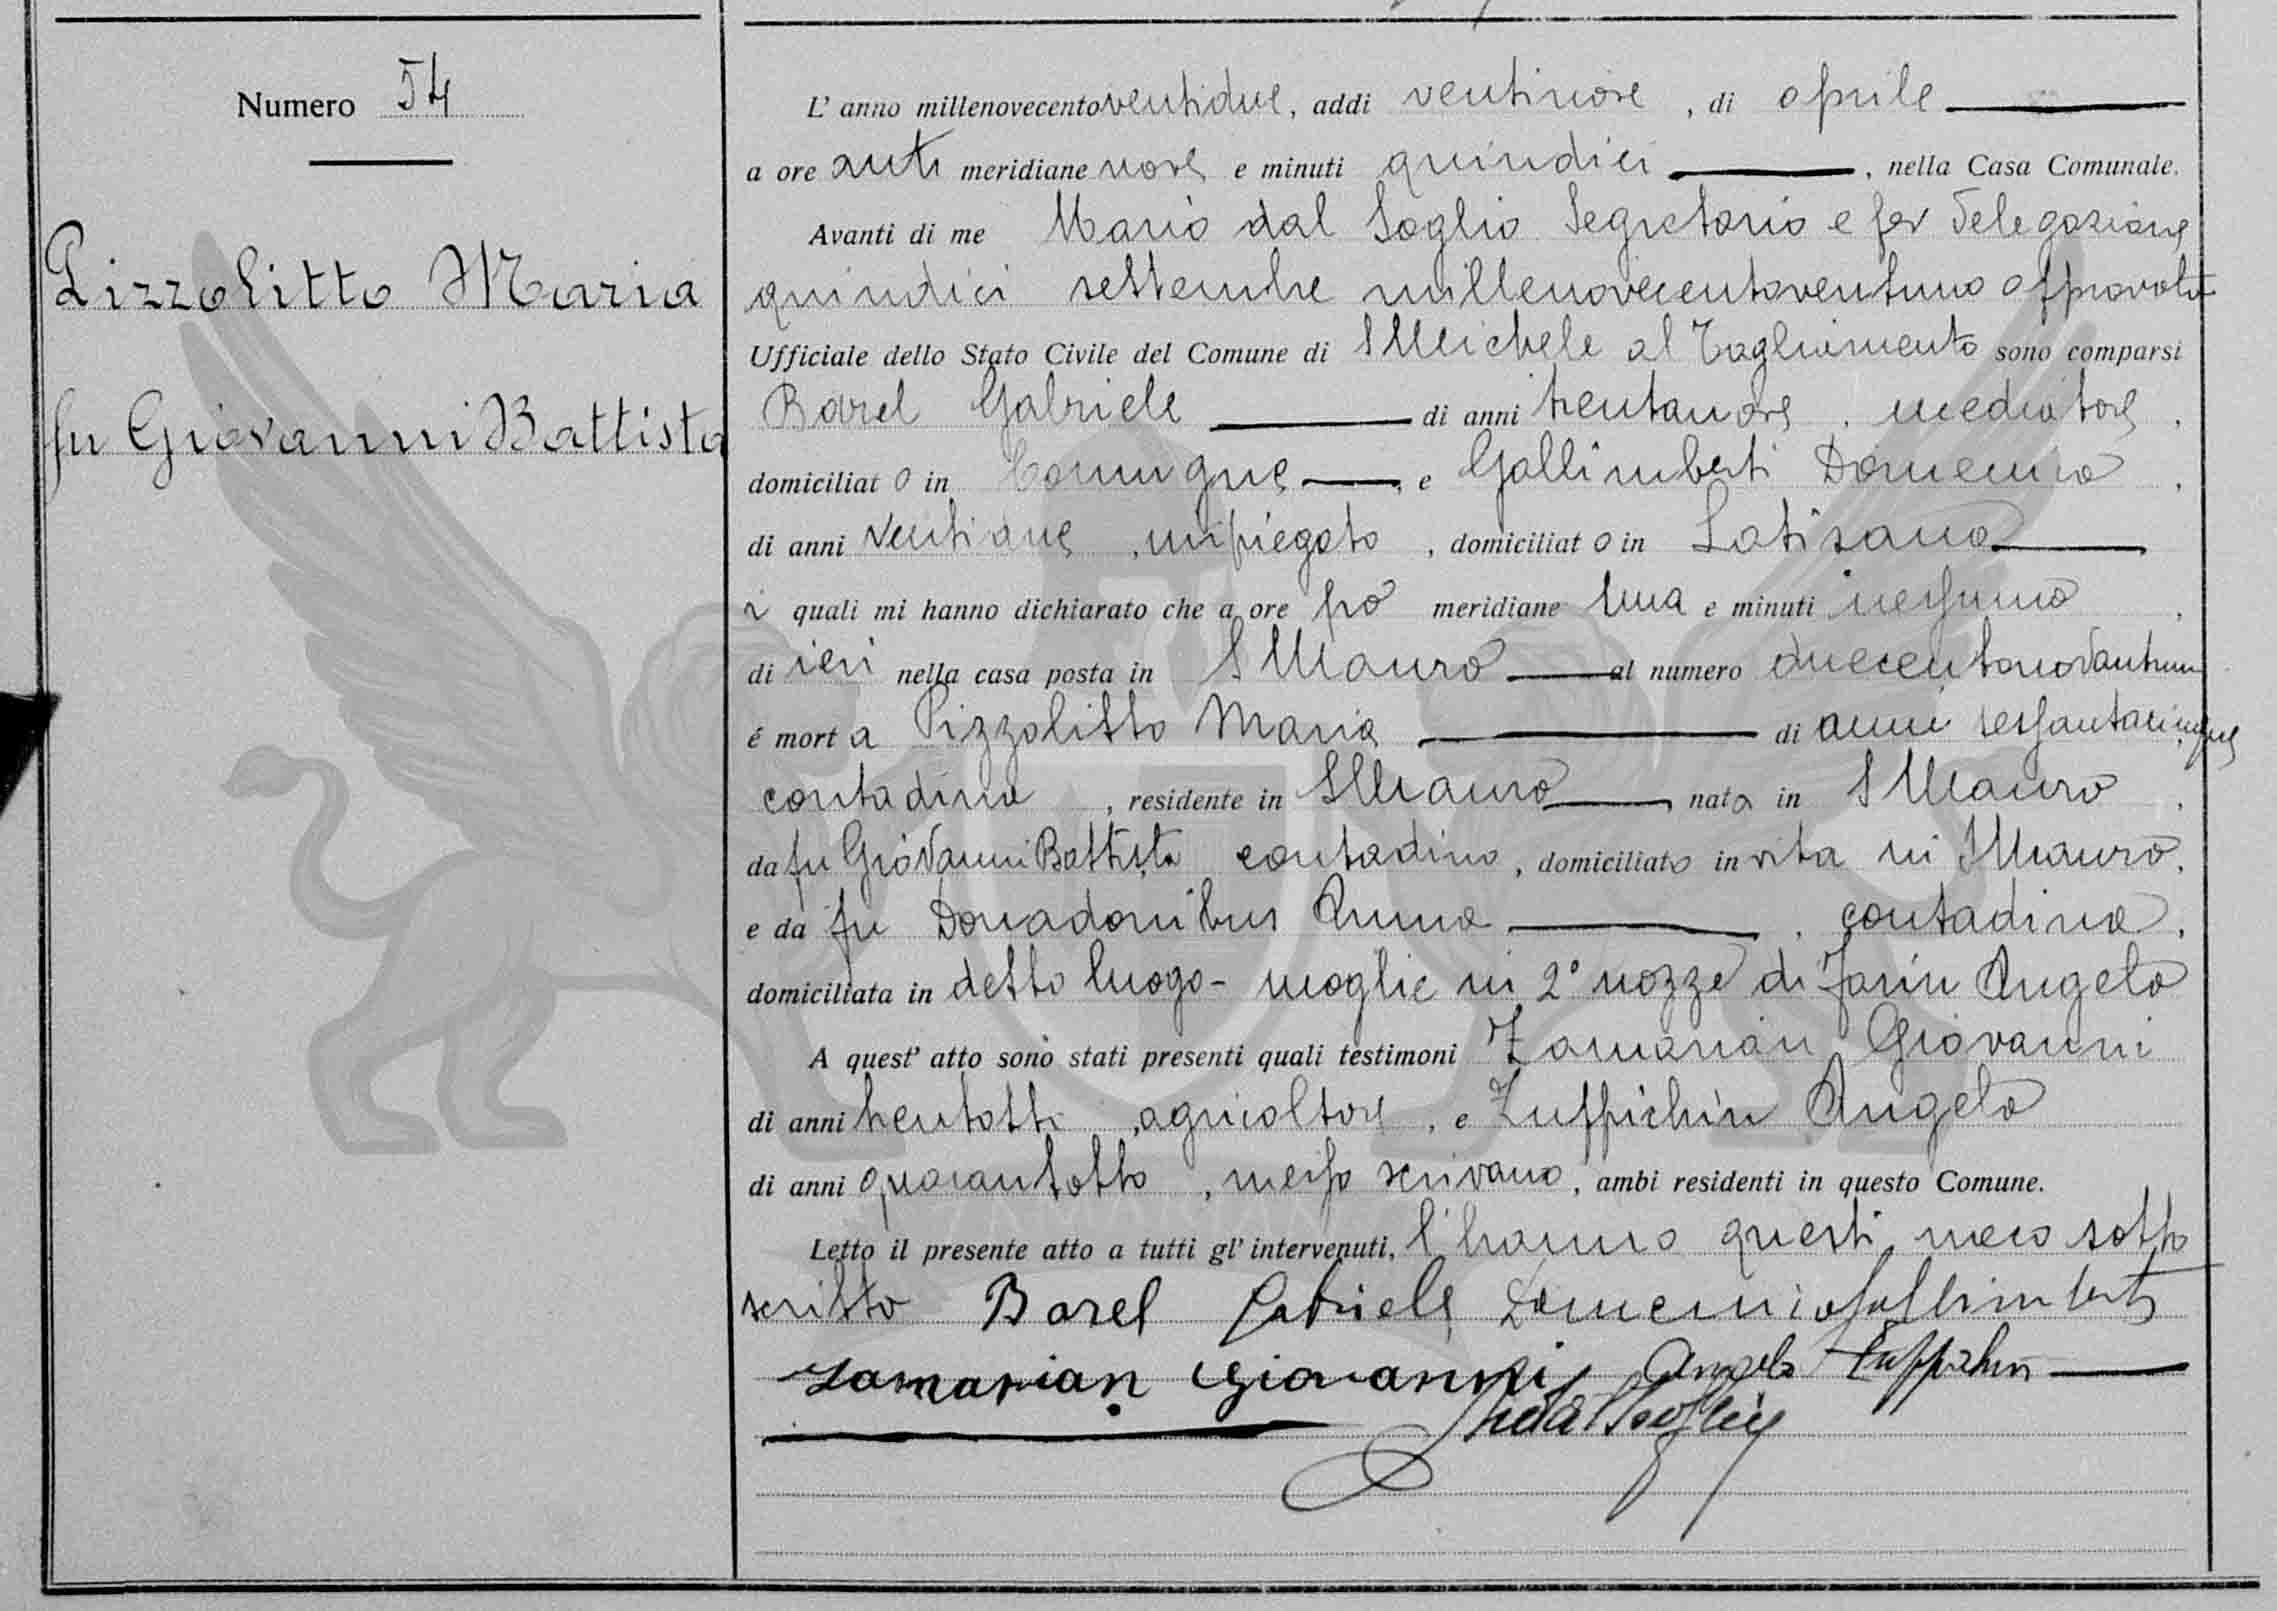 Numero 54
Pizzolitto Maria
fu Giovanni Battista
L' anno millenovecentoventidue, addi ventinove, di aprile
a ore anti meridiane nove e minuti quindici, nella Casa Comunale.
Avanti di me Mario dal Soglio Segretario e per Delegazione
quindici settembre millenovecentoventuno approvata
Ufficiale dello Stato Civile del Comune di S Michele al Tagliamento sono comparsi
Barel Gabriele di anni trentanove, mediatore,
domiciliato in, e Gallimberti Domenico,
di anni ventidue, impiegato, domiciliato in Latisana
i quali mi hanno dichiarato che a ore po meridiane una e minuti nessuno,
di ieri nella casa posta in S Mauro al numero duecentonovantuno
é morta Pizzolitto Maria di anni sessantacinque
contadina, residente in S Mauro, nata in S Mauro,
da fu Giovanni Battista contadino, domiciliato in vita in S Mauro,
e da fu Donadonibus Anna, contadina,
domiciliata in detto luogo - moglie in 2° nozze di Angelo
A quest' atto sono stati presenti quali testimoni Zamarian Giovanni
di anni trentotto, agricoltore, e Zuppichin Angelo
di anni quarantotto, messo scrivano, ambi residenti in questo Comune.
Letto il presente atto a tutti gl' intervenuti, l'hanno questi meco sotto
scritto Barel Gabriele Domenico Gallimberti
Zamarian Giovanni Angelo Zuppichin